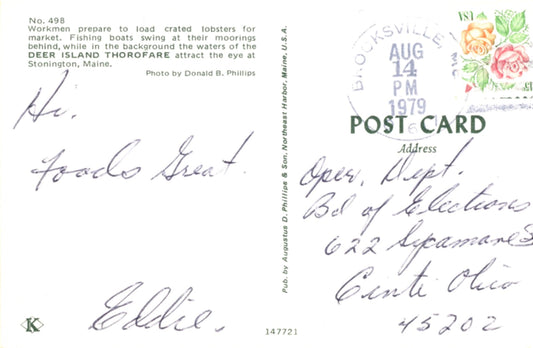 No. 498
Workmen prepare to load crated lobsters for
market. Fishing boats swing at their moorings
behind, while in the background the waters of the
DEER ISLAND THOROFARE attract the eye at
Stonington, Maine.
Photo by Donald B. Phillips
Hi.
Foods Great.
Eddie.
K
Pub. by Augustus D. Phillips & Son, Northeast Harbor, Maine, U.S.A.
147721
BROOKSVILLE,
AUG
14
PM
1979
USA
POST CARD
Address
Oper. Dept.
Bd of Elections
622 Sycamore S
Cinti Ohio
45202